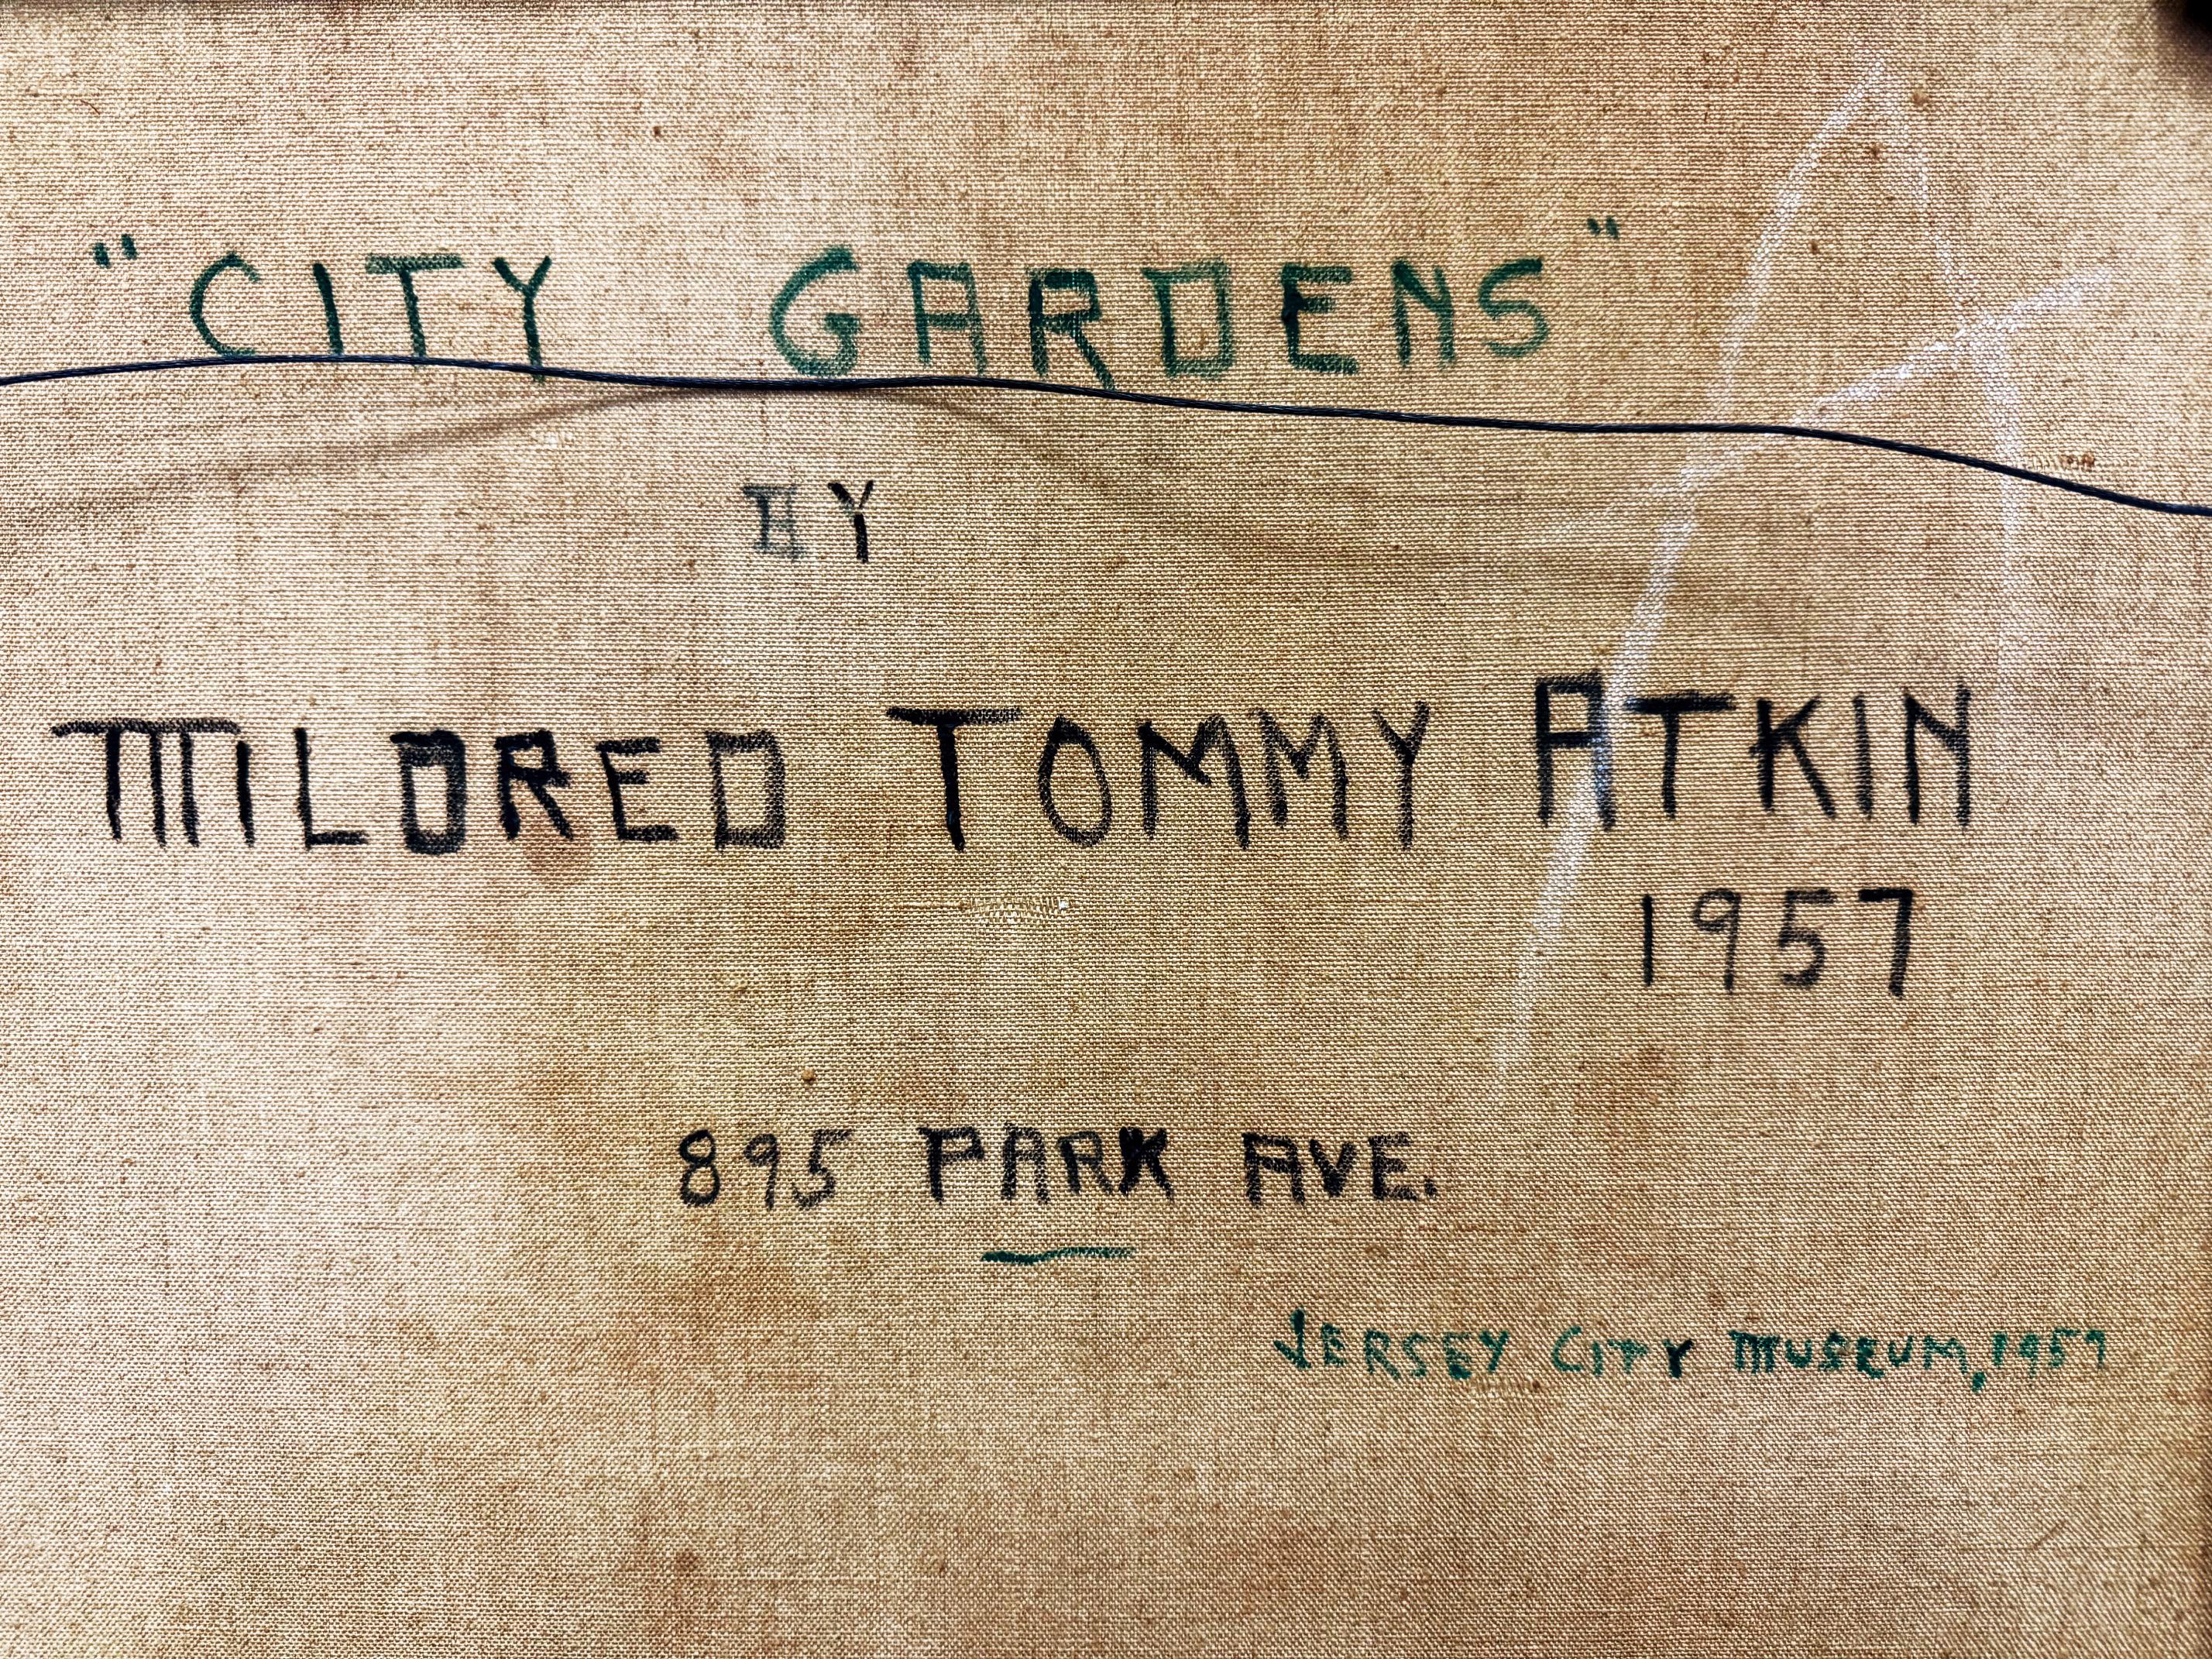 "CITY GARDENS"
BY
MILDRED TOMMY ATKIN
1957
895 PARK AVE.
JERSEY CITY MUSEUM, 1957